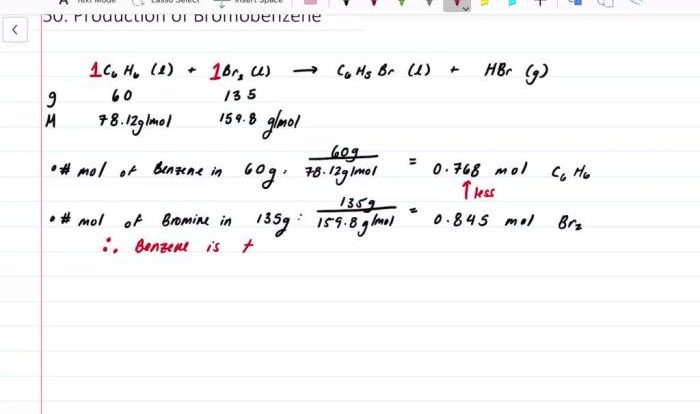 Text Mode Lasso Select Insert Space
50. Production of Bromobenzene
1C6 H6 (l) + 1Br2 (l) → C6 H5 Br (l) + HBr (g)
g 60 135
M 78.12g/mol 159.8 g/mol
• # mol of Benzene in 60g : 60g / 78.12g/mol = 0.768 mol C6 H6
↑ less
• # mol of Bromine in 135g : 135g / 159.8g/mol = 0.845 mol Br2
∴ Benzene is t